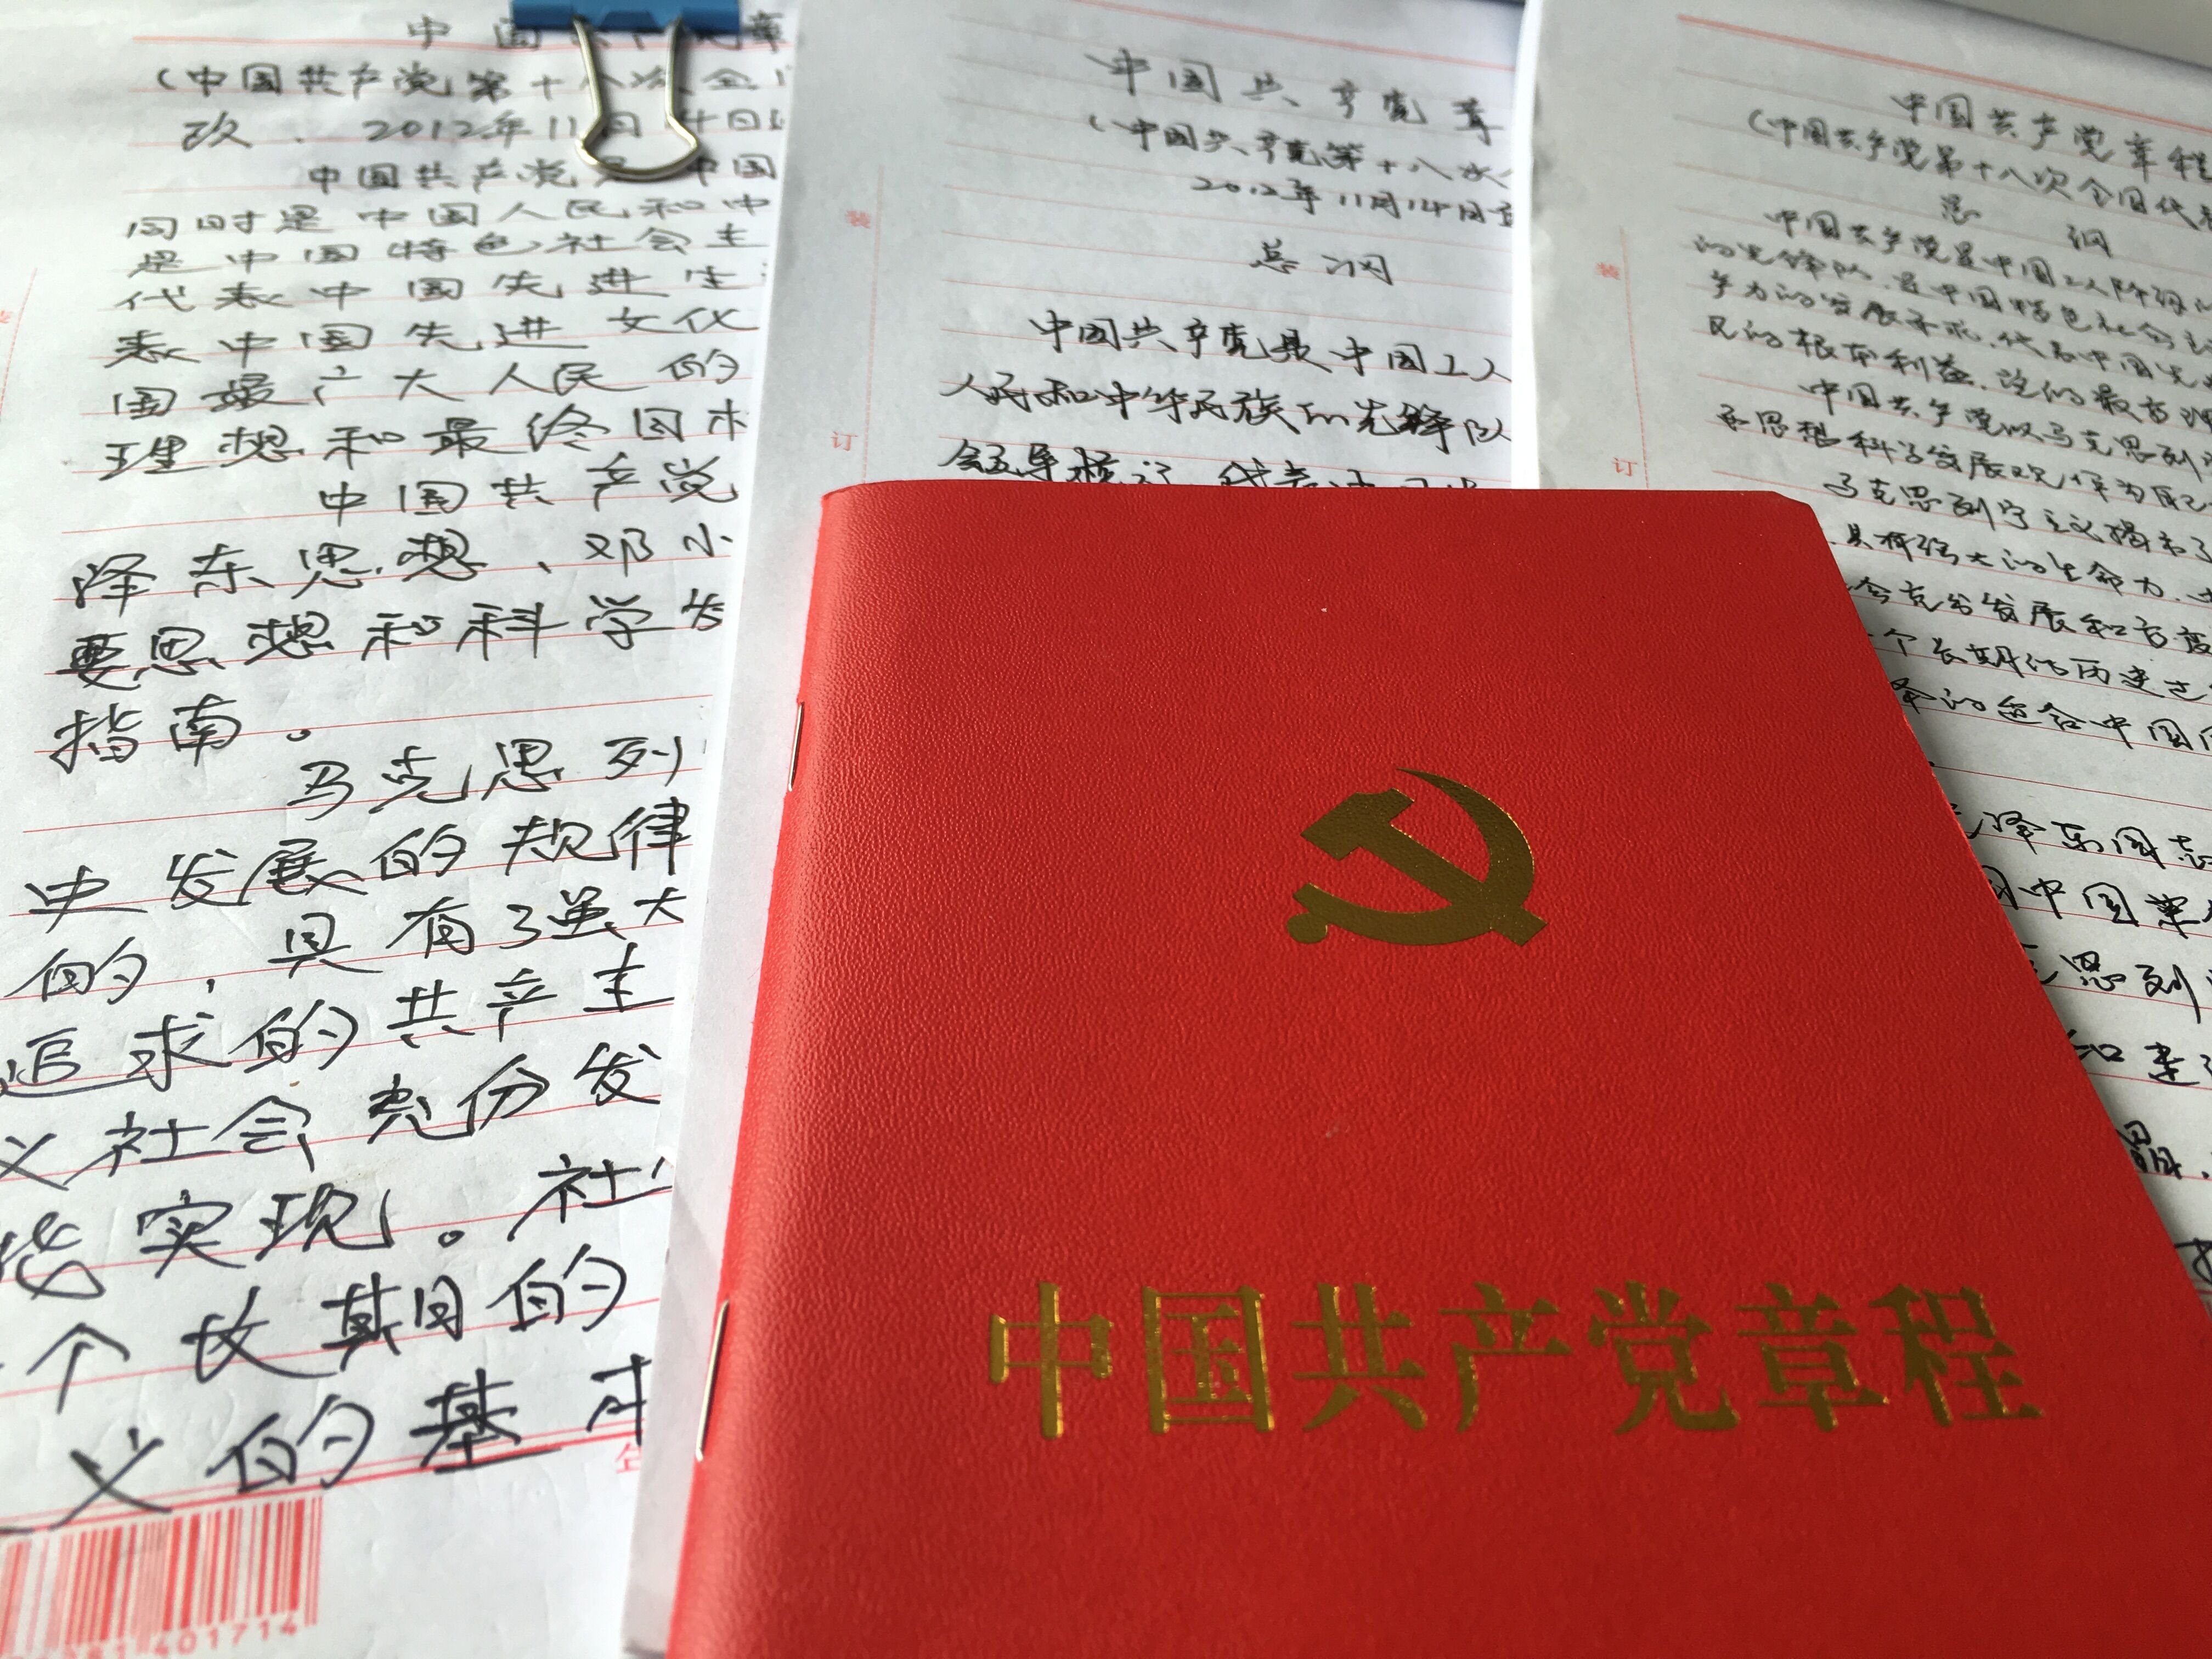 中国共产党章
(中国共产党第十八次全
改、2012年11月14日
中国共产党是中国
同时是中国人民和中
是中国特色社会主
代表中国先进生
表中国先进文化
国最广大人民的
理想和最终目标
中国共产党
泽东思想、邓小
要思想和科学发
指南。
马克思列
史发展的规律
的,具有强大
追求的共产主
义社会充份发
能实现。社
个故期的
义的基本
401714
中国共产党章
(中国共产党第十八次
2012年11月14日
总纲
中国共产党是中国工人
人民和中华民族的先锋队
装
订
中国共产党章程
(中国共产党第十八次全国代表
总纲
中国共产党是中国工人阶级
的先锋队,是中国特色社会主
民的根本利益。党的最高理
中国共产党以马克思列
要思想科学发展观作为自己
马克思列宁主义揭示了
具有强大的生命力。
会充分发展和高度
个长期的历史过
择的适合中国国
泽东同志
中国革
思列
和建
装
订
中国共产党章程